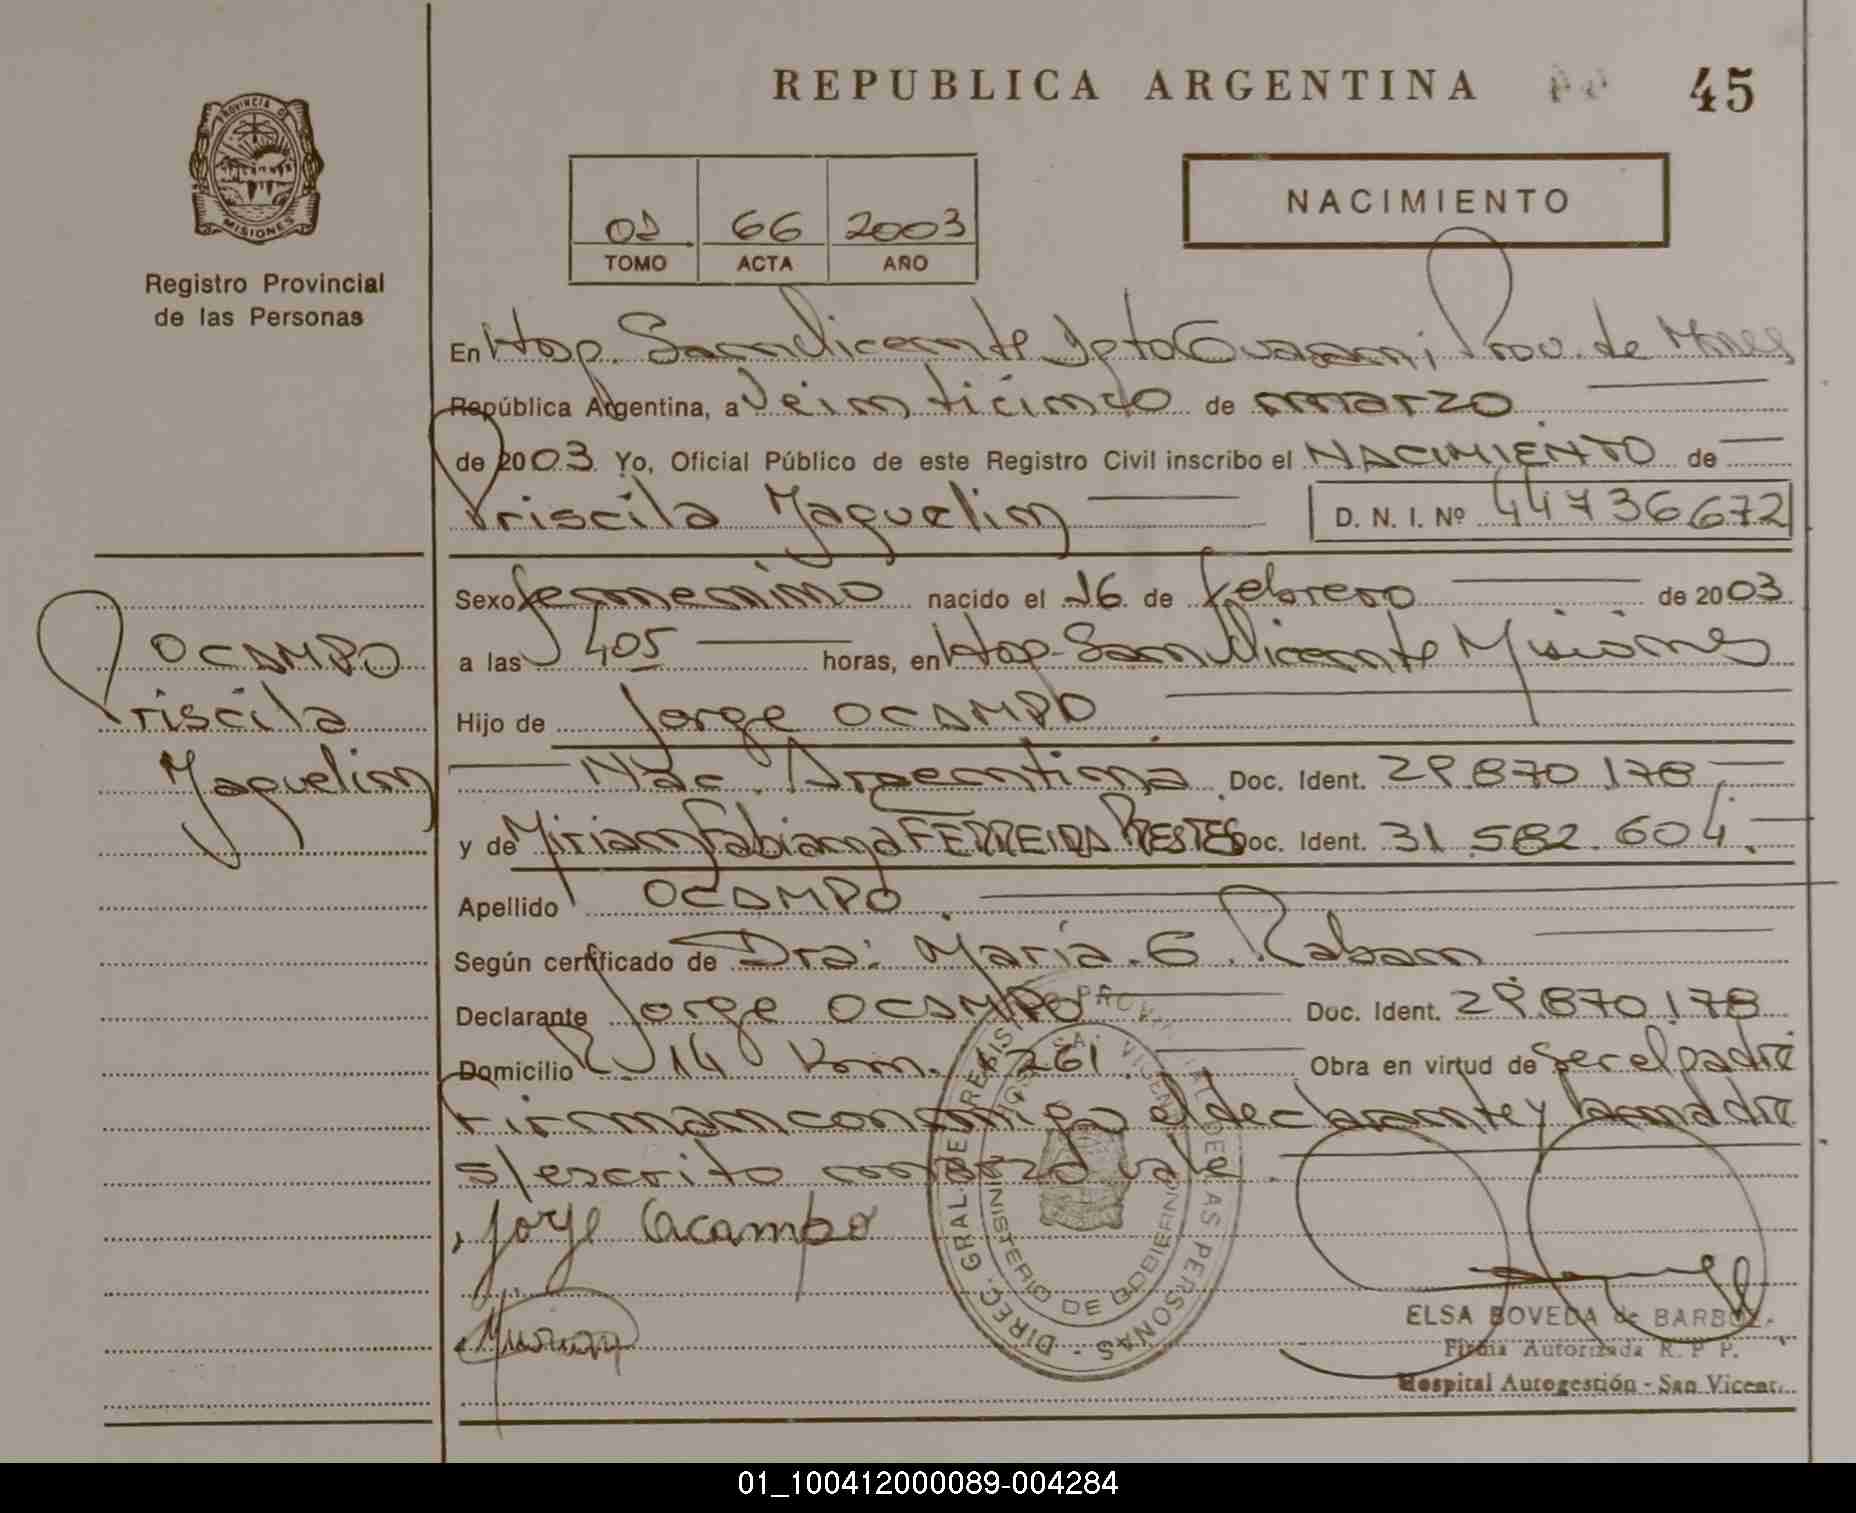 REPUBLICA ARGENTINA
45
PROVINCIA D MISIONES
Registro Provincial
de las Personas
NACIMIENTO
02 66 2003
TOMO ACTA AÑO
En Hosp. San Vicente Dpto Guarani Prov. de Mnes
República Argentina, a Veinticinco de marzo
de 2003. Yo, Oficial Público de este Registro Civil inscribo el NACIMIENTO de
Priscila Yaquelin D. N. I. Nº 44736672
Sexo femenino nacido el 16 de febrero de 2003
a las 405 horas, en Hosp. San Vicente Misiones
Hijo de Jorge OCAMPO
Nac. Argentina Doc. Ident. 29.870.178
y de Miriam Fabiana FERREIRA PRESTES Doc. Ident. 31.582.604.
Apellido OCAMPO
Según certificado de Dra: Maria. E. Raban
Declarante Jorge OCAMPO Doc. Ident. 29.870.178
Domicilio R 14 Km. 1261. Obra en virtud de ser el padre
Firman conmigo el declarante y la madre
s/escrito marzo vale.
Jorge Ocampo
Miriam
OCAMPO
Priscila
Yaquelin
DIREC. GRAL DE REGISTRO PROVINCIAL DE LAS PERSONAS
MINISTERIO DE GOBIERNO
ELSA BOVEDA de BARBOZA
Firma Autorizada R. P. P.
Hospital Autogestión - San Vicente
01_100412000089-004284